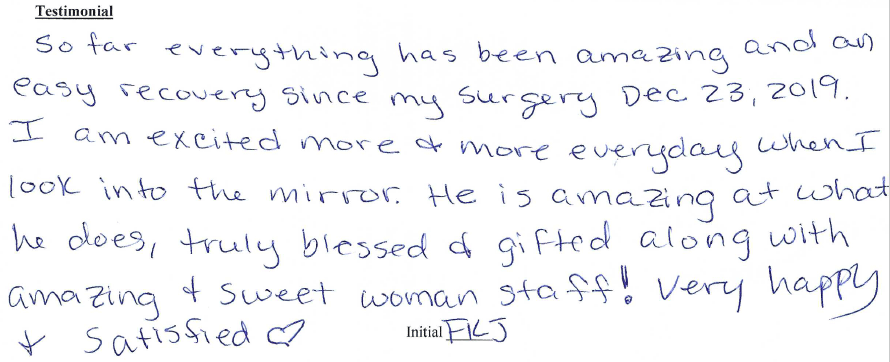 Testimonial
So far everything has been amazing and an
easy recovery since my surgery Dec 23, 2019.
I am excited more & more everyday when I
look into the mirror. He is amazing at what
he does, truly blessed & gifted along with
amazing & sweet woman staff! Very happy
& satisfied ♡ Initial